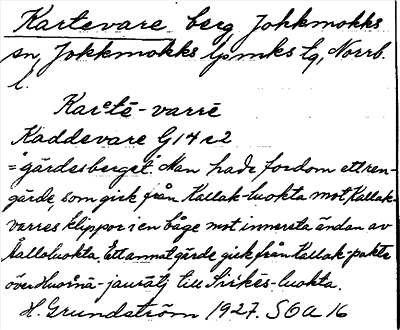 Kartevare berg Jokkmokks
sn, Jokkmokks lpmks tg, Norrb.
l.
Karətē-varrē
Kaddevare G14c2
="gärdesberget". Man hade fordom ett ren-
gärde, som gick från Kallak-luokta mot Kallak-
varres klippor i en båge mot innersta ändan av
Källoluokta. Ett annat gärde gick från Kallak-pakte
över Huornā-jaurātj till Sirkēs-luokta.
H. Grundström 1927. SOA 16